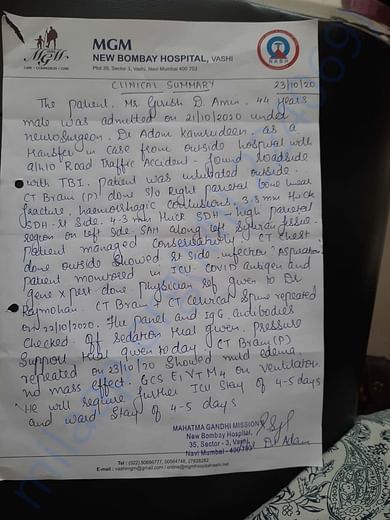 MGM
NEW BOMBAY HOSPITAL, VASHI
Plot 35, Sector 3, Vashi, Navi Mumbai 400 703
CLINICAL SUMMARY 23/10/20
The patient. Mr Girish D. Amin. 44 years
male was admitted on 21/10/2020 under
neurosurgeon. Dr Adam Kamrudeen. as a
transfer in case from outside hospital with
a/h/o Road Traffic Accident - found roadside
with TBI. Patient was intubated outside.
CT Brain (P) done S/o Right parietal bone linear
fracture, haemorrhagic contusions. 3.3 mm thick
SDH - Rt side. 4.3 mm thick SDH - high parietal
region on left side. SAH along left sylvian fissure.
Patient managed conservatively. CT Chest
done outside showed Rt side. infection Aspiration
patient monitored in ICU. COVID antigen and
gene xpert done. Physician ref given to Dr
Rajmohan. CT Brain + CT Cervical Spine repeated
on 22/10/2020. Flu panel and IgG. antibodies
checked. Off sedation trial given. pressure
support trial given today. CT Brain (P)
repeated on 23/10/20 showed mild edema.
no mass effect. GCS E1 VT M4 on ventilator.
He will require further ICU stay of 4-5 days
and ward stay of 4-5 days
MAHATMA GANDHI MISSION'S
New Bombay Hospital,
35, Sector - 3, Vashi,
Navi Mumbai - 400 703
Dr Adam
Tel : (022) 50666777, 50564748, 27828282